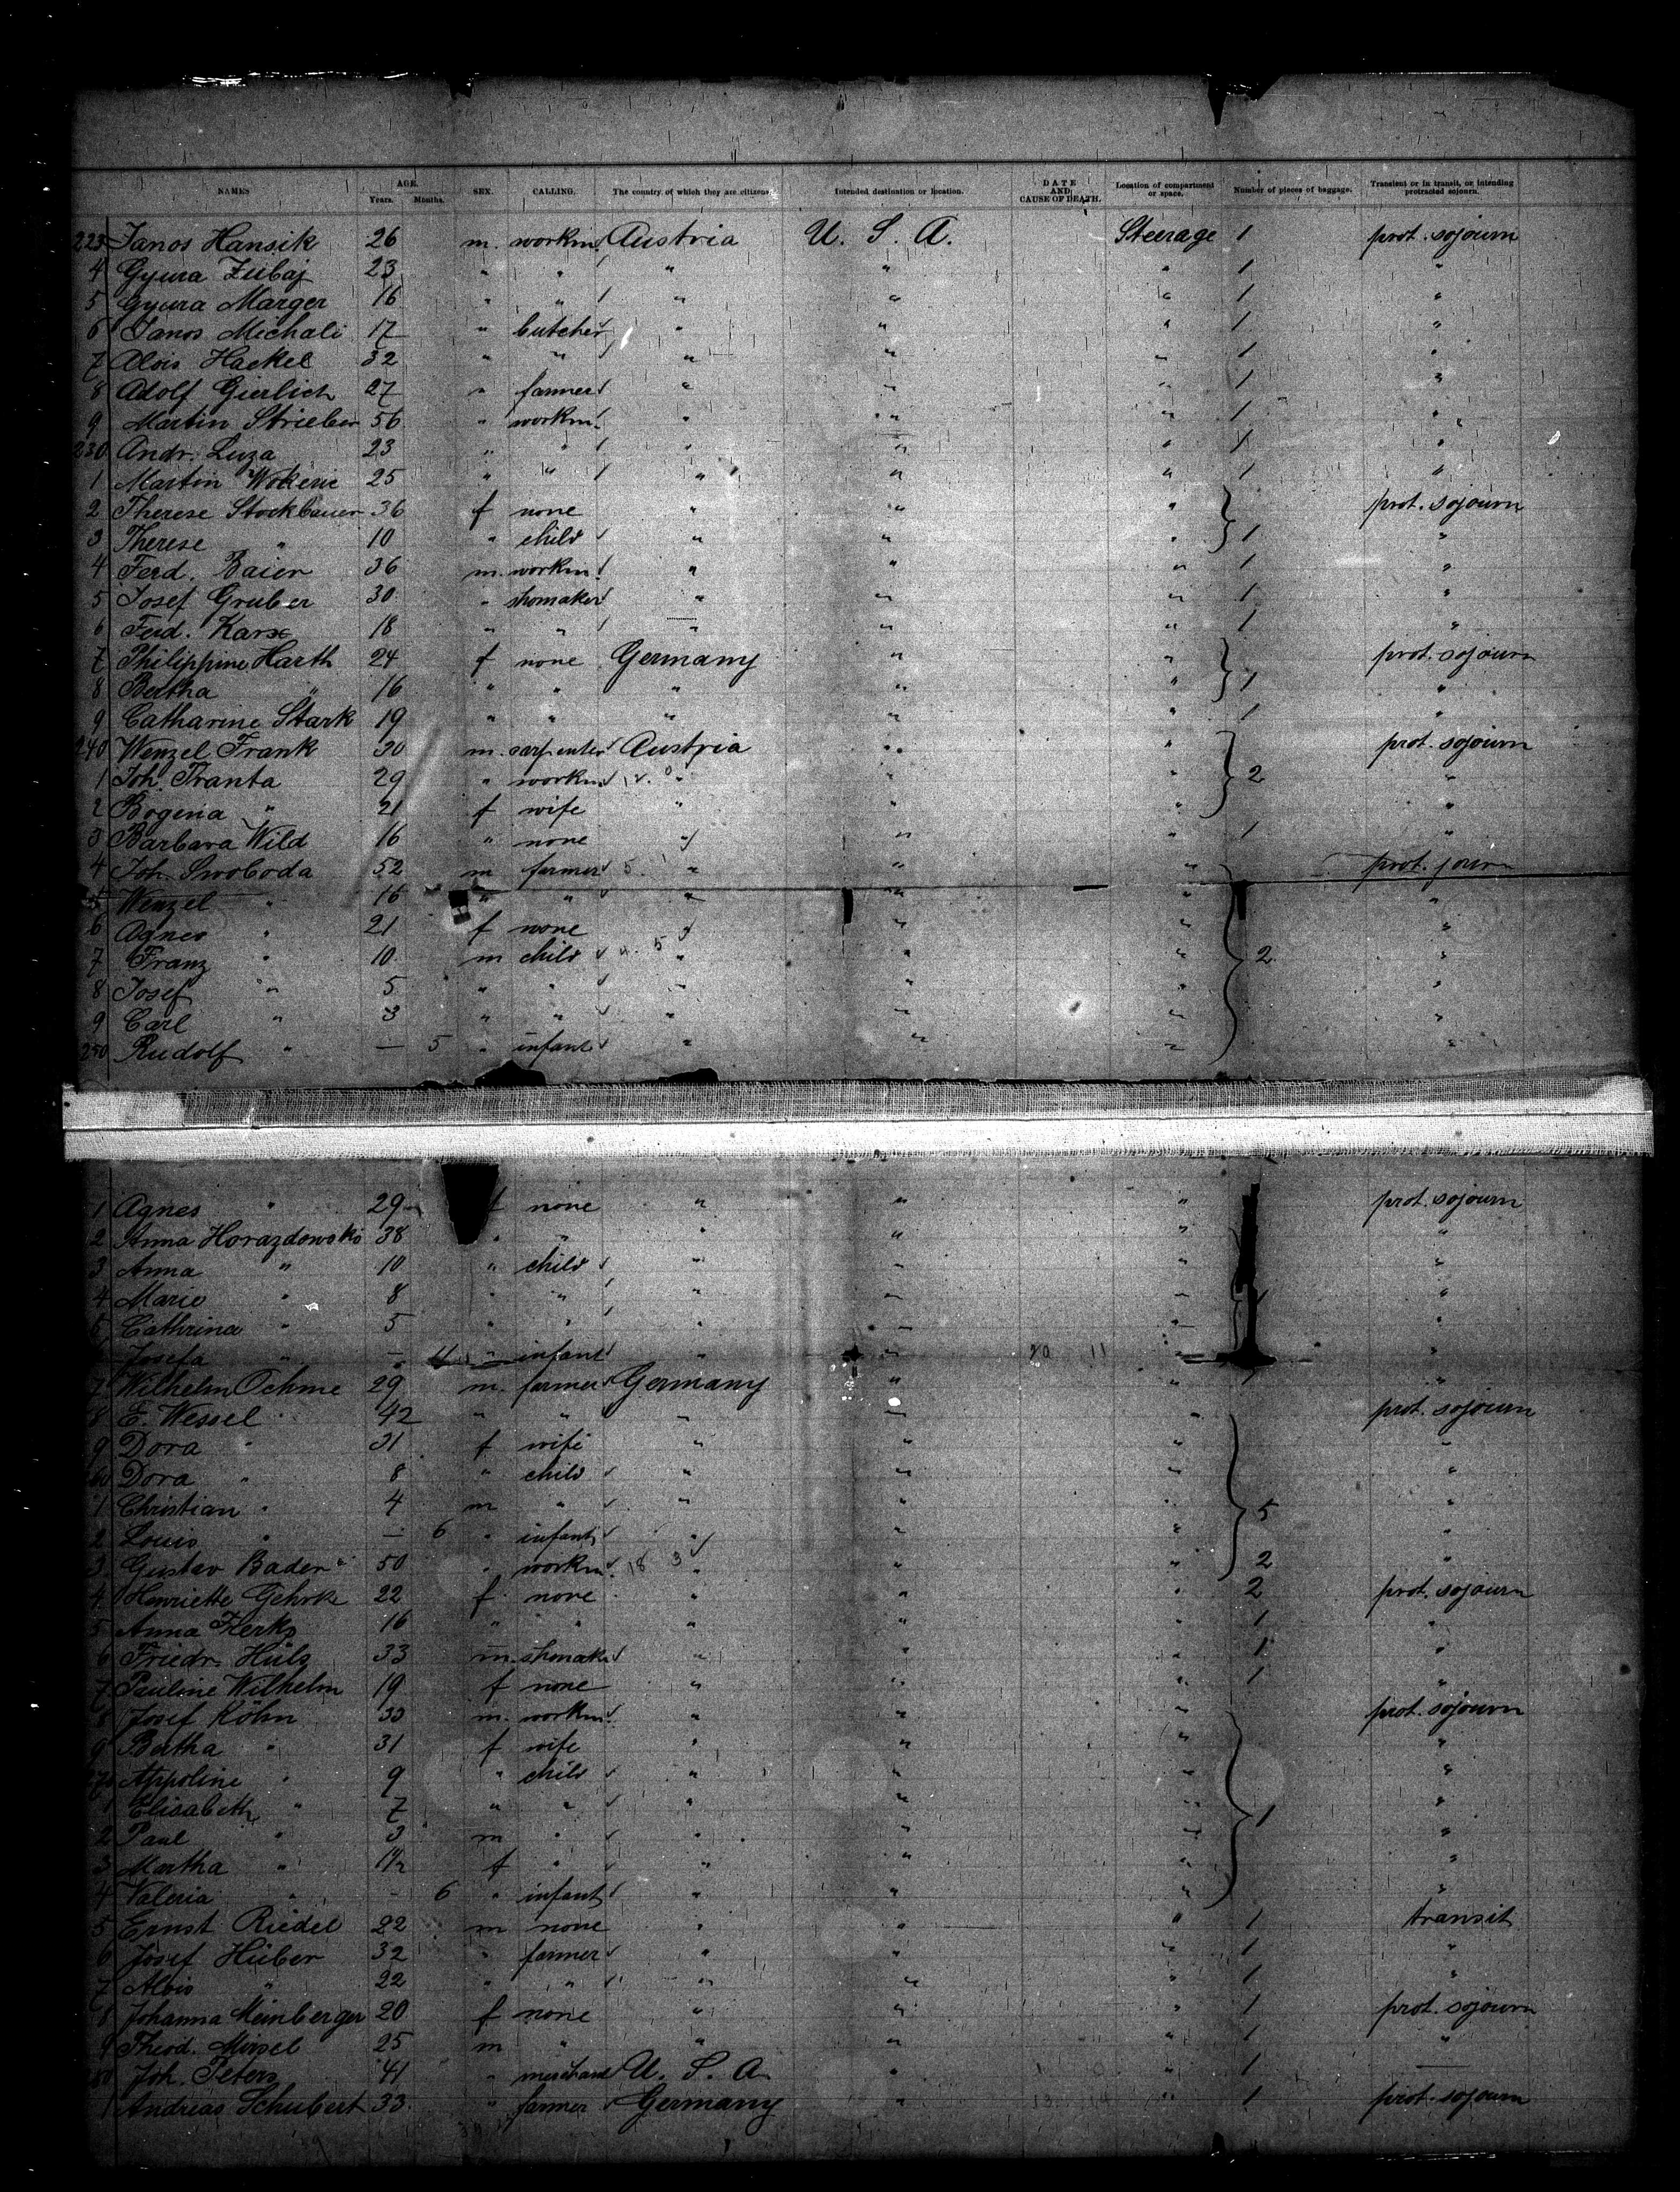 NAMES AGE. Years. Months. SEX. CALLING. The country of which they are citizens. Intended destination or location. DATE AND CAUSE OF DEATH. Location of compartment or space. Number of pieces of baggage. Transient or in transit, or intending protracted sojourn.
223 Janos Hansik 26 m. workm. Austria U. S. A. Steerage 1 prot. sojourn
4 Gyura Zubaj 23 " " " " " 1 "
5 Gyura Marger 16 " " " " " 1 "
6 Janos Michali 17 " butcher " " " 1 "
7 Alois Hackel 32 " " " " " 1 "
8 Adolf Gierlich 27 " farmer " " " 1 "
9 Martin Strieber 56 " workm. " " " 1 "
230 Andr. Luza 23 " " " " " 1 "
1 Martin 25 " " " " " 1 "
2 Therese Stockbauer 36 f none " " " prot. sojourn
3 Therese " 10 " child " " " 1 "
4 Ferd. Baier 36 m. workm. " " " 1 "
5 Josef Gruber 30 " shomaker " " " 1 "
6 Ferd. 18 " " " " " 1 "
7 Philippine Harth 24 f none Germany " " prot. sojourn
8 Bertha " 16 " " " " " 1 "
9 Catharine Stark 19 " " " " " 1 "
240 Wenzel Frank 30 m. carpenter Austria " " prot. sojourn
1 Joh. Tranta 29 " workm. " " " 2 "
2 Bogena " 21 f wife " " " "
3 Barbara Wild 16 " none " " " 1 "
4 Joh. Swoboda 52 m farmer " " " prot. journ
5 Wenzel " 16 " " " " " "
6 Agnes " 21 f none " " " "
7 Franz " 10 m child " " " 2 "
8 Josef " 5 " " " " " "
9 Carl " 3 " " " " " "
250 Rudolf " — 5 " infant " " " "
1 Agnes " 29 f none " " " prot. sojourn
2 Anna Horazdowski 38 " " " " " "
3 Anna " 10 " child " " " "
4 Marie " 8 " " " " " 1 "
5 Cathrina " 5 " " " " " "
Josefa " — 11 " infant " " " "
7 Wilhelm Oehme 29 m. farmer Germany " " "
8 E. Wessel 42 " " " " " prot. sojourn
9 Dora " 31 f wife " " " "
60 Dora " 8 " child " " " "
1 Christian " 4 m " " " " 5 "
2 Louis " — 6 " infant " " " "
3 Gustav Bader 50 " workm. " " " 2 "
4 Henriette Gehrk 22 f none " " " 2 prot. sojourn
5 Anna 16 " " " " " 1 "
6 Friedr. Hüls 33 m. shomak " " " 1 "
7 Pauline Wilhelm 19 f none " " " 1 "
8 Josef Köhn 33 m. workm. " " " prot. sojourn
9 Bertha " 31 f wife " " " "
270 Appoline " 9 " child " " " "
1 Elisabeth " 7 " " " " " 1 "
2 Paul " 3 m " " " " "
3 Martha " 1½ f " " " " "
4 Valeria " - 6 " infant " " " "
5 Ernst Riedel 22 m none " " " 1 transit
6 Josef Hüber 32 " farmer " " " 1 "
7 Alois " 22 " " " " " 1 "
8 Johanna Meinberger 20 f none " " " 1 prot. sojourn
9 Theod. Mirsel 25 m " " " " 1 "
80 Joh. Peters 41 " merchant U. S. A. " " 1 —
1 Andreas Schubert 33 " farmer Germany " " 1 prot. sojourn